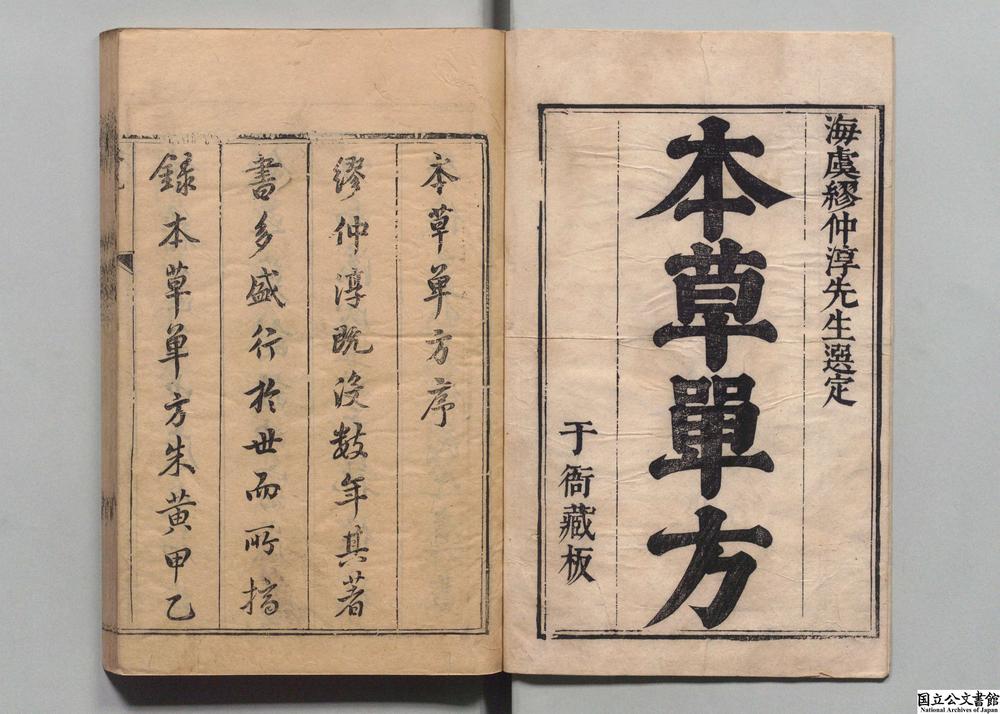 海虞繆仲淳先生選定
本草單方
于衙藏板
本草单方序
繆仲淳既沒数年其著
書多盛行於世而所摘
録本草单方朱黄甲乙
国立公文書館
National Archives of Japan